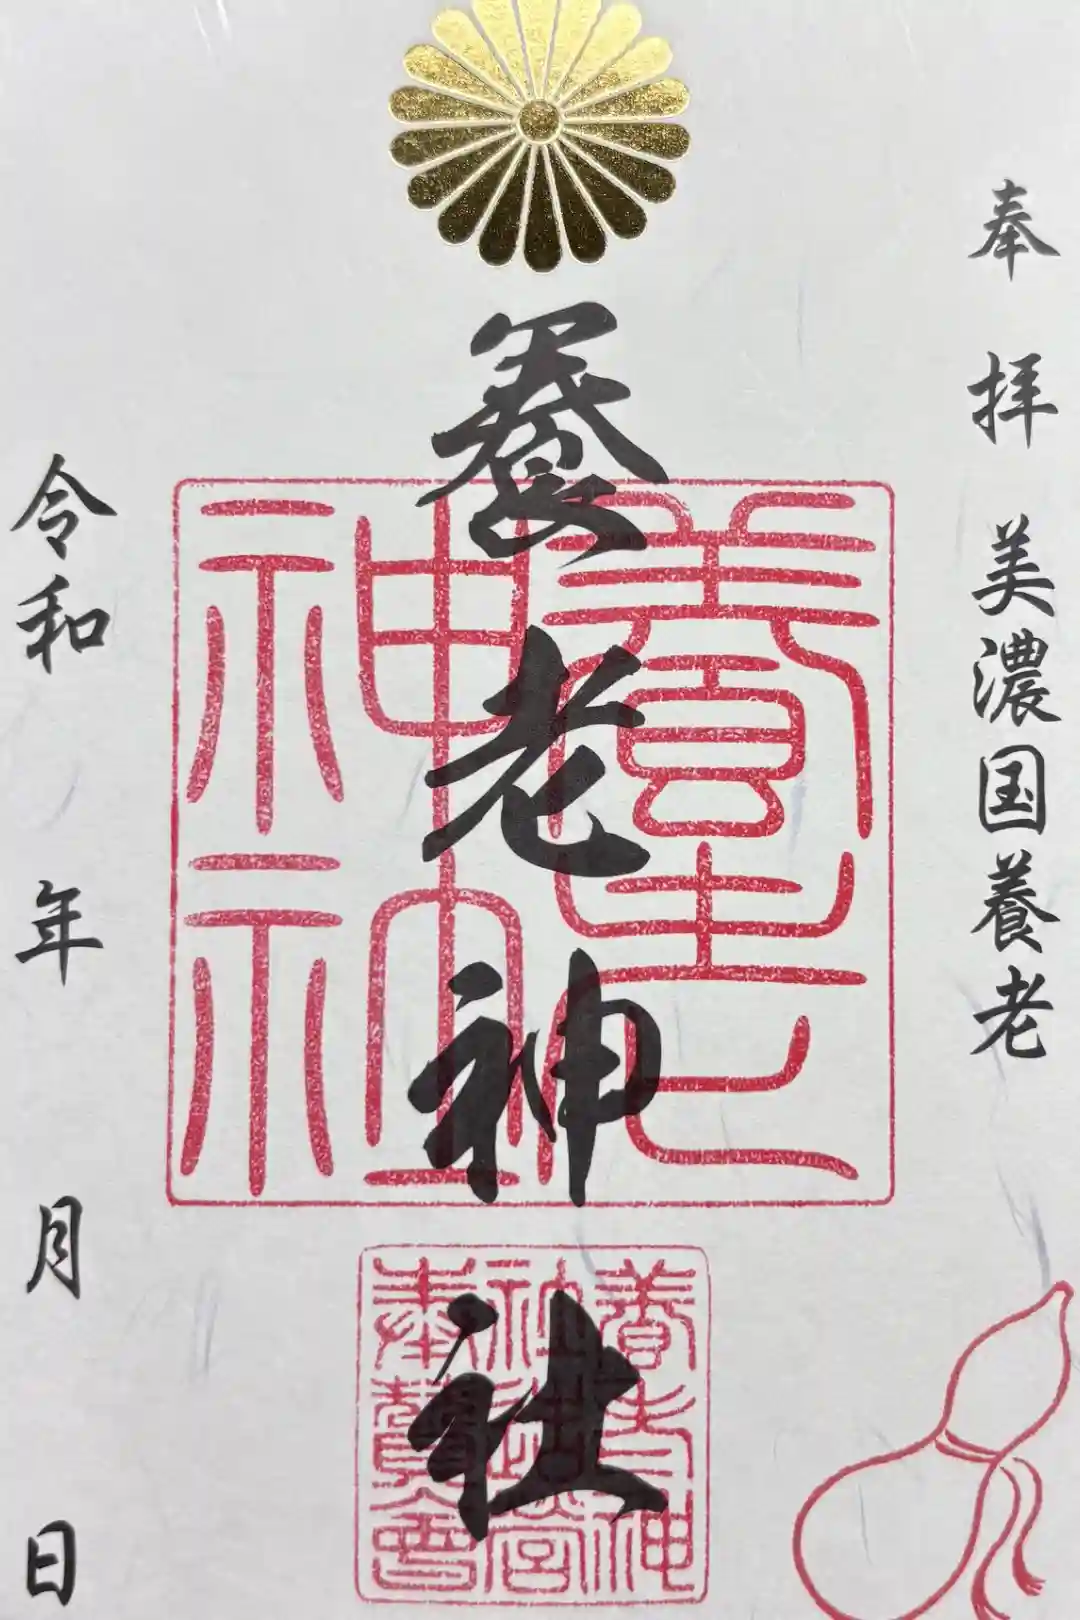 奉拝 美濃国養老
養老神社
養老神社
養老神社造営奉賛会
令和 年 月 日